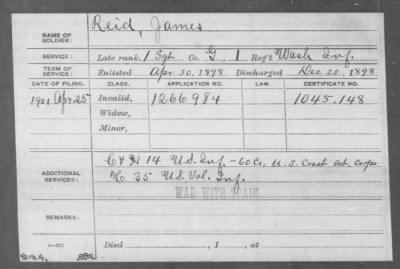 NAME OF SOLDIER: Reid, James
SERVICE: Late rank, 1 Sgt Co. G, 1 Reg't Wash Inf.
TERM OF SERVICE: Enlisted Apr 30, 1898 Discharged Dec 20, 1898
DATE OF FILING. CLASS. APPLICATION NO. LAW. CERTIFICATE NO.
1901 Apr. 25 Invalid, 1266984 1045.148
Widow,
Minor,
ADDITIONAL SERVICES: C & H 14 U.S. Inf. - 60 Co, U.S. Coast Art. Corps
35 U.S. Vol. Inf.
WAR WITH SPAIN
REMARKS:
Died , 1 , at